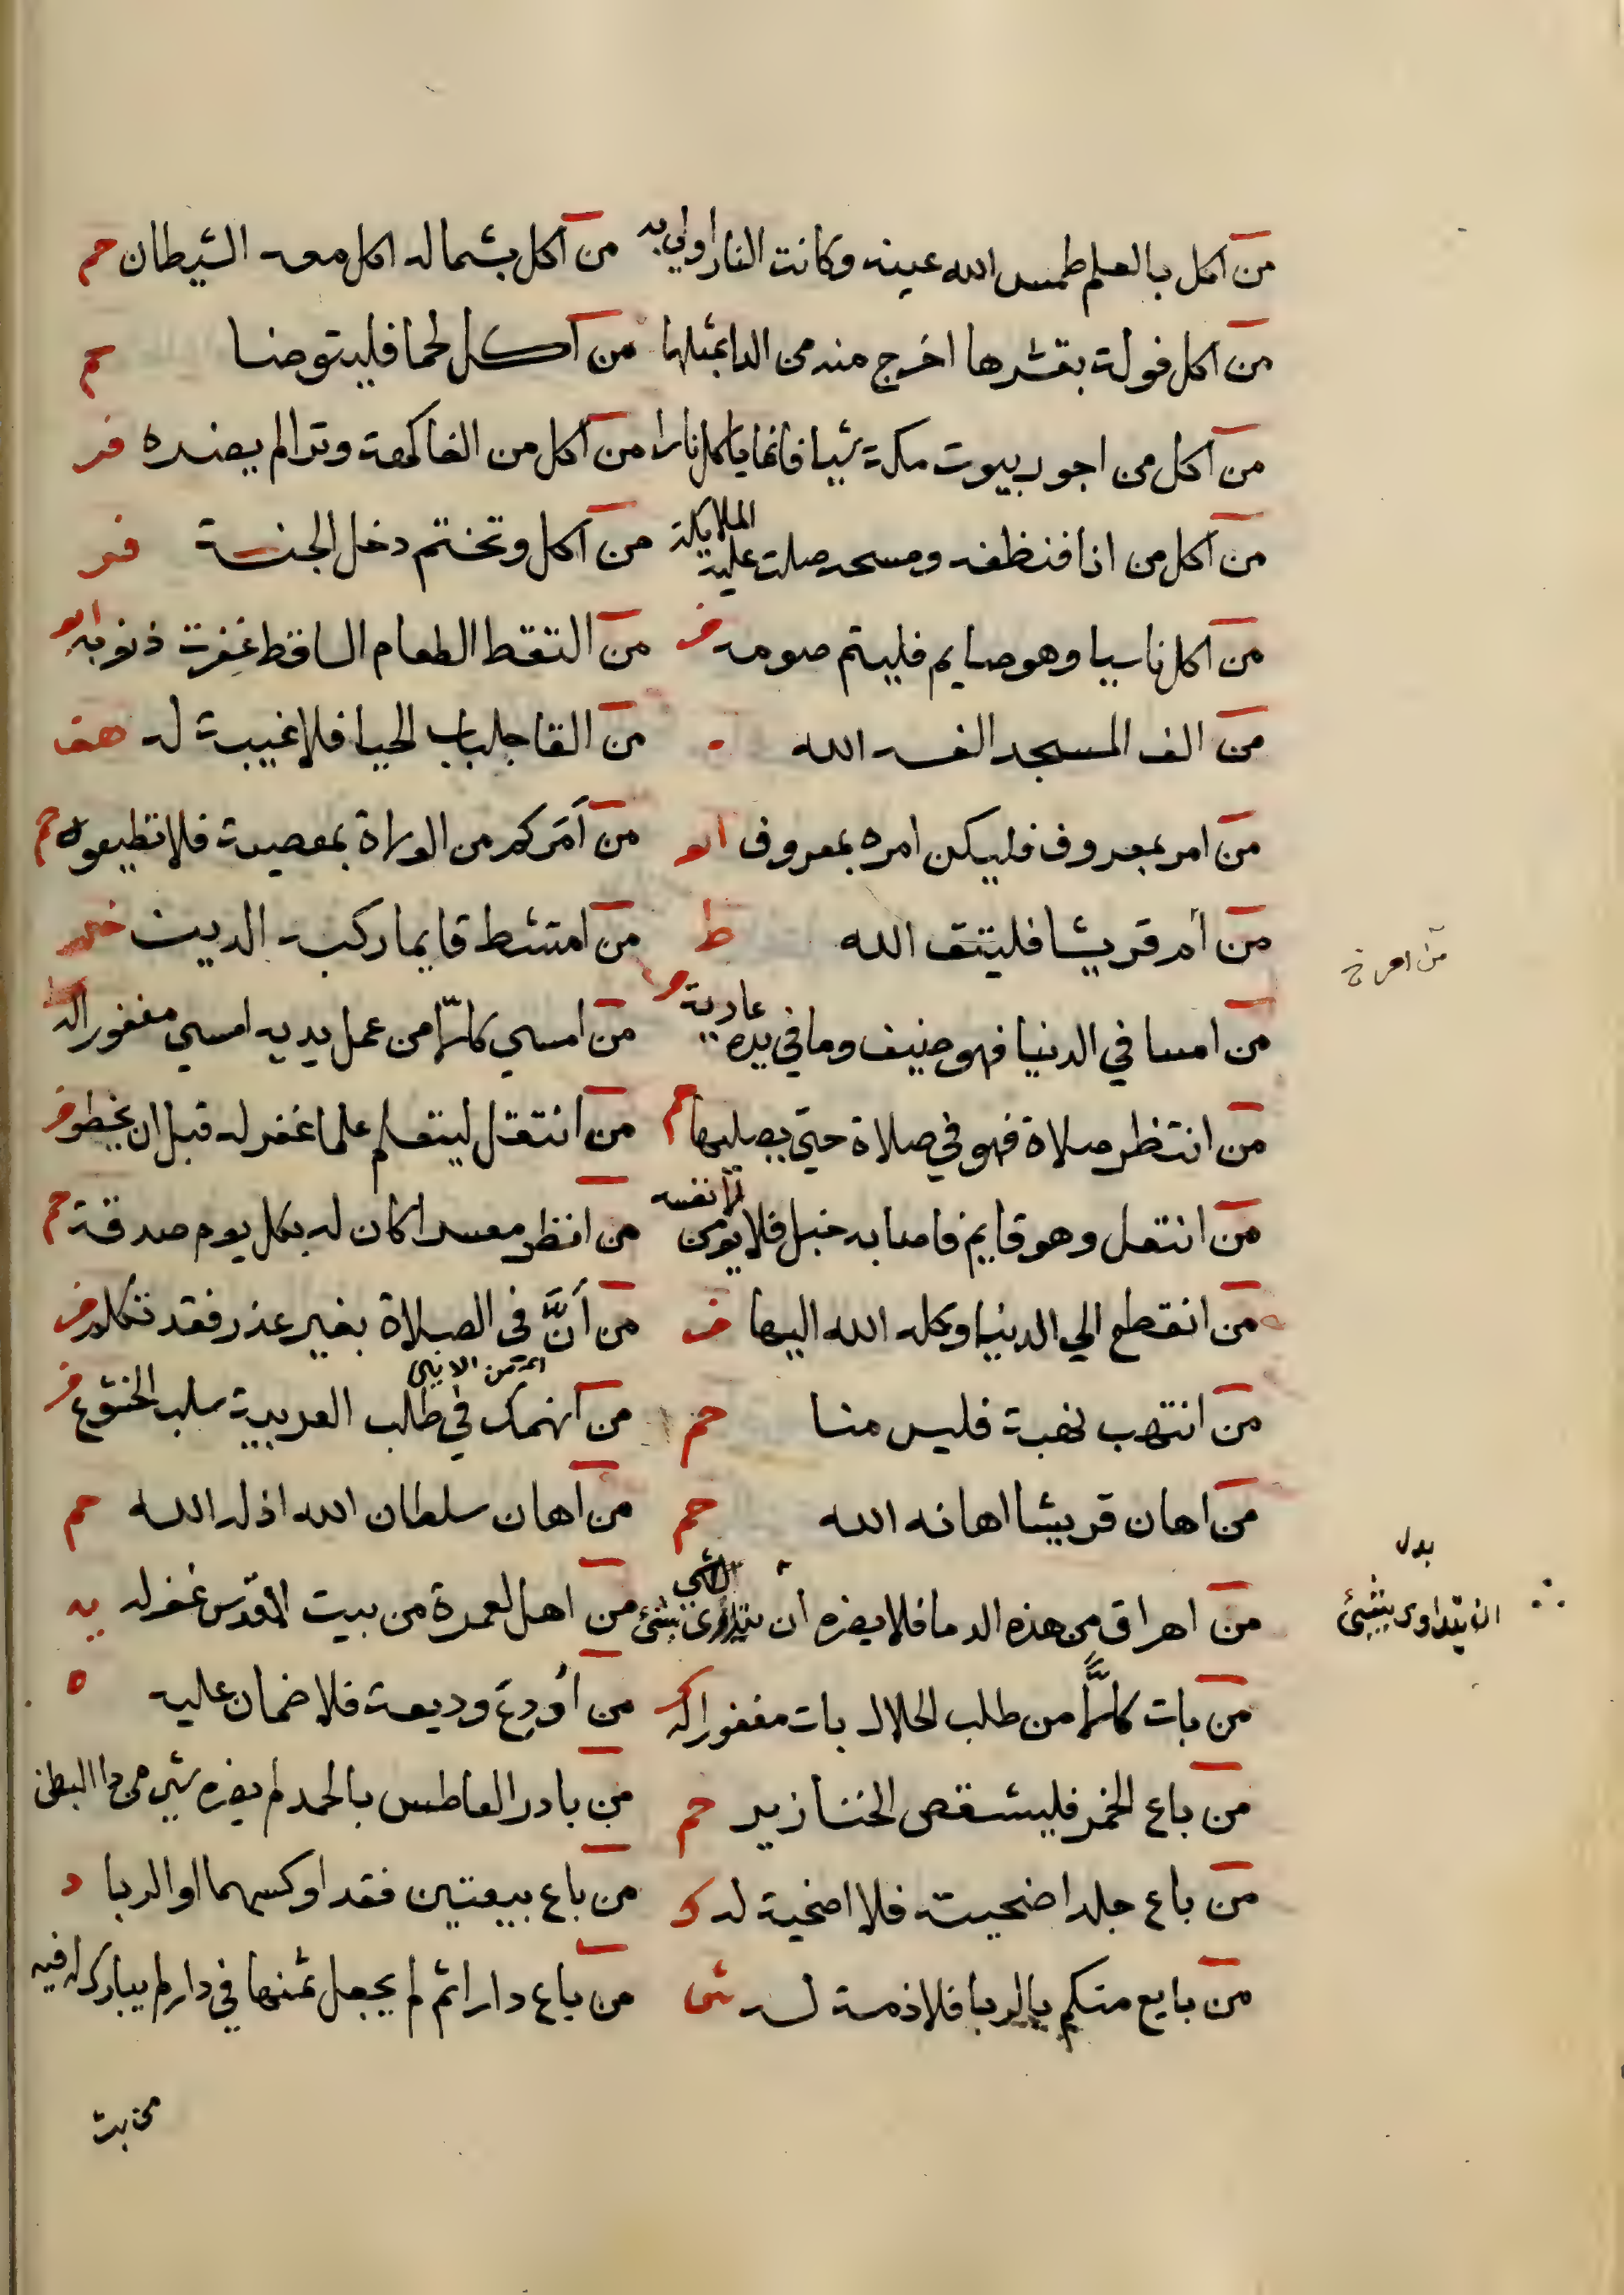 من اكل بالعلم طمس الله عينه وكانت النار اولي به من اكل بشماله اكل معه الشيطان حم
من اكل فولة بقشرها اخرج منه من الدا بمثلها من اكل لحما فليتوضا حم
من اكل من اجور بيوت مكة شيا فانما ياكل نارا من اكل من الفاكهة وترا لم يضره فر
من اكل من انا فنظفه ومسحه صلت عليه الملايكة من اكل وتختم دخل الجنة فر
من اكل ناسيا وهو صايم فليتم صومه من التقط الطعام الساقط غفرت ذنوبه
من الف المسجد الفه الله من القا جلباب الحيا فلا غيبة له هق
من امر بمعروف فليكن امره بمعروف من أمركم من الولاة بمعصية فلا تطيعوه حم
من أم قريشا فليتق الله ط من امتشط قايما ركبه الدين
من امسا في الدنيا فهو ضيف وما في يده عارية من امسي كالّا من عمل يديه امسي مغفورا له
من انتظر صلاة فهو في صلاة حتي يصليها حم من انتقل ليتعلم علما غفر له قبل ان يخطو
من انتعل وهو قايم فاصابه خبل فلا يلومن الا نفسه من انظر معسرا كان له بكل يوم صدقة حم
من انقطع الي الدنيا وكله الله اليها من أنَّ في الصلاة بغير عذر فقد تكلم
من انتهب نهبة فليس منا حم من انهمك في طلب العربية سلب الخشوع
من اهان قريشا اهانه الله حم من اهان سلطان الله اذله الله حم
من اهراق من هذه الدما فلا يضره ان يتداوى بشئ من اهل لعمرة من بيت المقدس غفر له
من بات كالًّا من طلب الحلال بات مغفورا له من أودع وديعة فلا ضمان عليه ه
من باع الخمر فليشقص الخنازير حم من بادر العاطس بالحمد لم يضره شي من دا البطن
من باع جلد اضحيته فلا اضحية له ك من باع بيعتين فقد اوكسهما او الربا د
من بايع منكم بالربا فلا ذمة له ش من باع دارا ثم لم يجعل ثمنها في دار لم يبارك له فيه
بدل
ان يتداوى بشئ